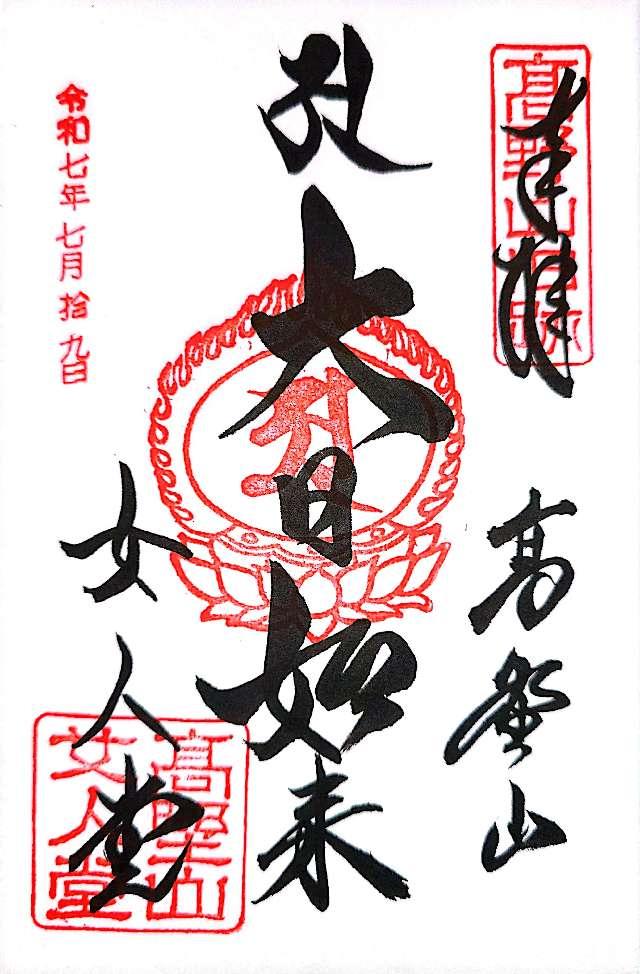 奉拝
高野山
大日如来
女人堂
令和七年七月拾九日
高野山
女人堂